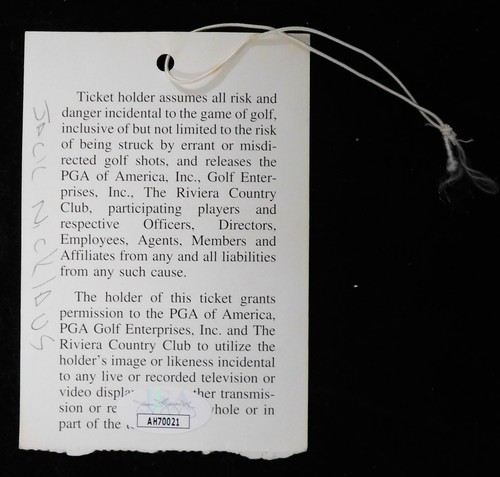 Ticket holder assumes all risk and
danger incidental to the game of golf,
inclusive of but not limited to the risk
of being struck by errant or misdi-
rected golf shots, and releases the
PGA of America, Inc., Golf Enter-
prises, Inc., The Riviera Country
Club, participating players and
respective Officers, Directors,
Employees, Agents, Members and
Affiliates from any and all liabilities
from any such cause.
The holder of this ticket grants
permission to the PGA of America,
PGA Golf Enterprises, Inc. and The
Riviera Country Club to utilize the
holder's image or likeness incidental
to any live or recorded television or
video ther transmis-
sion or whole or in
part of the
AH70021
JACK NICKLAUS